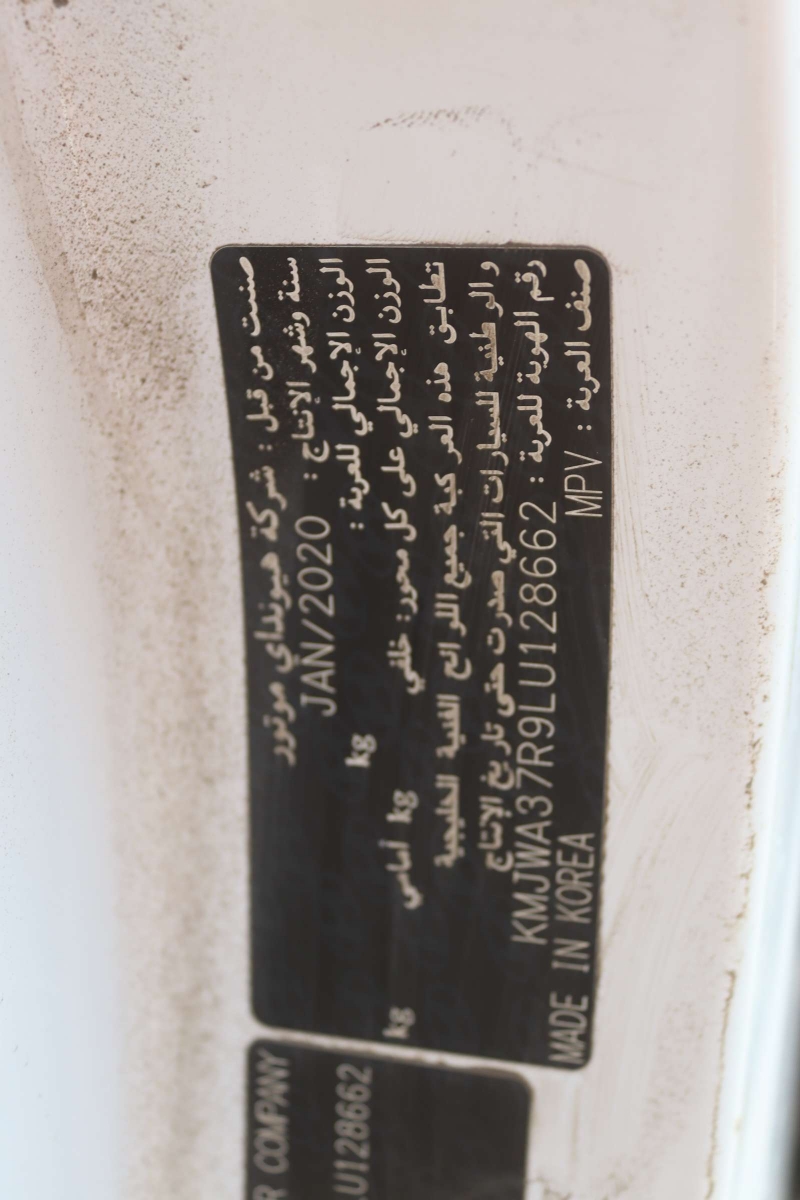 صنعت من قبل : شركة هيونداي موتور
سنة وشهر الإنتاج : JAN/2020
الوزن الإجمالي للعربة : kg
الوزن الإجمالي على كل محور: خلفي kg أمامي kg
تطابق هذه المركبة جميع اللوائح الفنية الخليجية
والوطنية للسيارات التي صدرت حتى تاريخ الإنتاج
رقم الهوية للعربة : KMJWA37R9LU128662
صنف العربة : MPV MADE IN KOREA
R COMPANY
LU128662